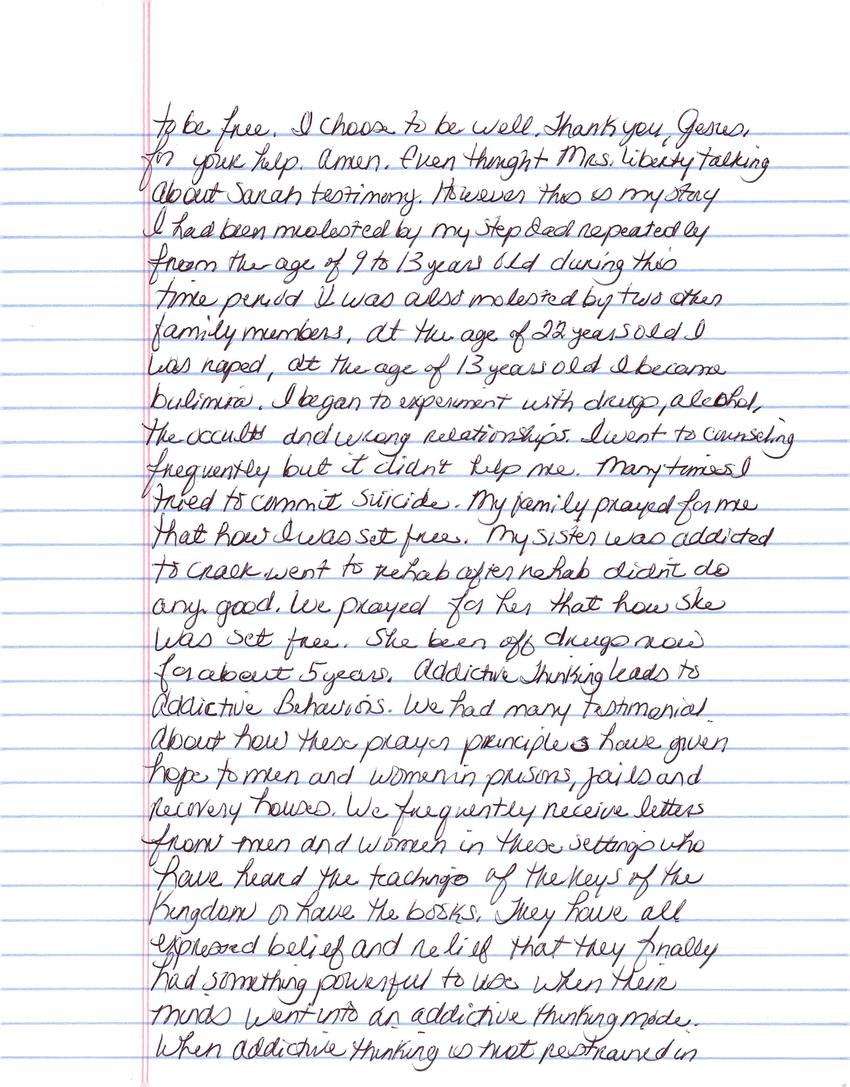 to be free. I choose to be well. Thank you, Jesus,
for your help. Amen. Even thought Mrs. Liberty talking
about Sarah testimony. However this is my story
I had been molested by my step dad repeatedly
from the age of 9 to 13 years old during this
time period I was also molested by two other
family members, at the age of 22 years old I
was raped, at the age of 13 years old I became
bulimira. I began to experiment with drugs, alcohol,
the occults and wrong relationships. I went to counseling
frequently but it didn't help me. Many times I
tried to commit suicide. My family prayed for me
that how I was set free. My sister was addicted
to crack went to rehab after rehab didn't do
any good. We prayed for her that how she
was set free. She been off drugs now
for about 5 years. Addictive Thinking leads to
Addictive Behaviors. We had many testimonial
about how these prayer principles have given
hope to men and women in prisons, jails and
recovery houses. We frequently receive letters
from men and women in these settings who
have heard the teachings of the Keys of the
Kingdom or have the books. They have all
expressed belief and relief that they finally
had something powerful to use when their
minds went into an addictive thinking mode.
When addictive thinking is not restrained in